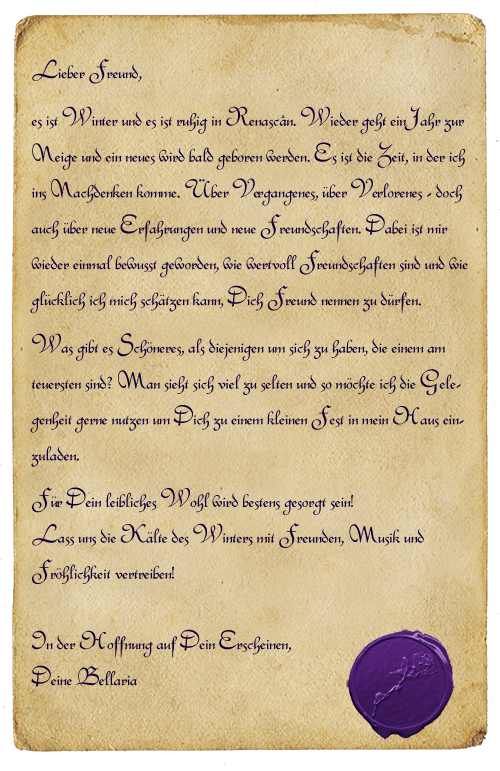 Lieber Freund,
es ist Winter und es ist ruhig in Renascân. Wieder geht ein Jahr zur
Neige und ein neues wird bald geboren werden. Es ist die Zeit, in der ich
ins Nachdenken komme. Über Vergangenes, über Verlorenes - doch
auch über neue Erfahrungen und neue Freundschaften. Dabei ist mir
wieder einmal bewusst geworden, wie wertvoll Freundschaften sind und wie
glücklich ich mich schätzen kann, Dich Freund nennen zu dürfen.
Was gibt es Schöneres, als diejenigen um sich zu haben, die einem am
teuersten sind? Man sieht sich viel zu selten und so möchte ich die Gele-
genheit gerne nutzen um Dich zu einem kleinen Fest in mein Haus ein-
zuladen.
Für Dein leibliches Wohl wird bestens gesorgt sein!
Lass uns die Kälte des Winters mit Freunden, Musik und
Fröhlichkeit vertreiben!
In der Hoffnung auf Dein Erscheinen,
Deine Bellaria